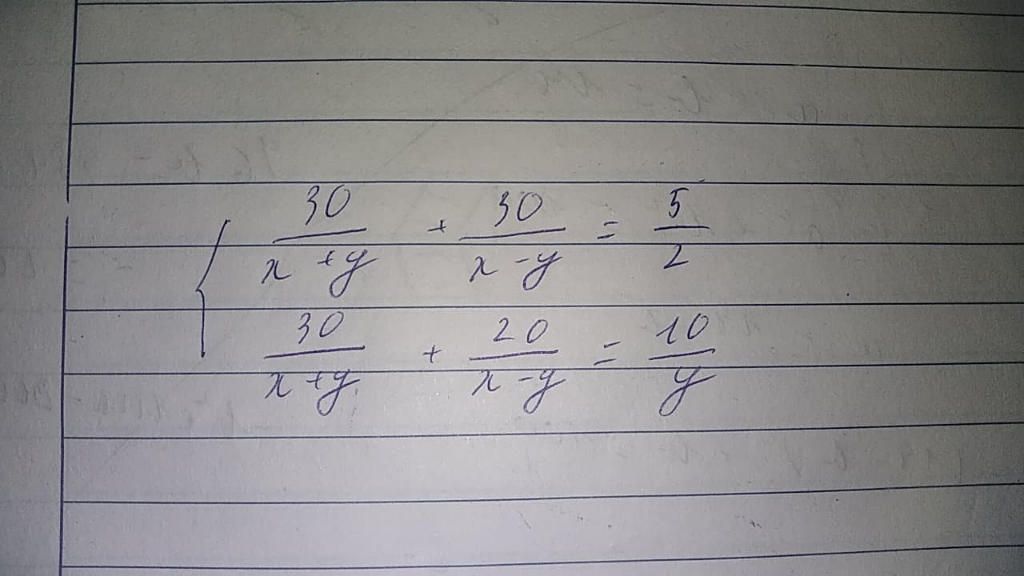 30/(x+y) + 30/(x-y) = 5/2
30/(x+y) + 20/(x-y) = 10/y